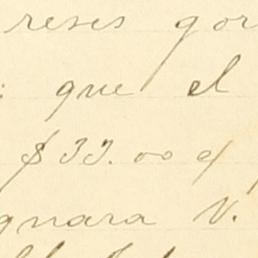 reses gor
que el
$33.00 c/
gnara V.